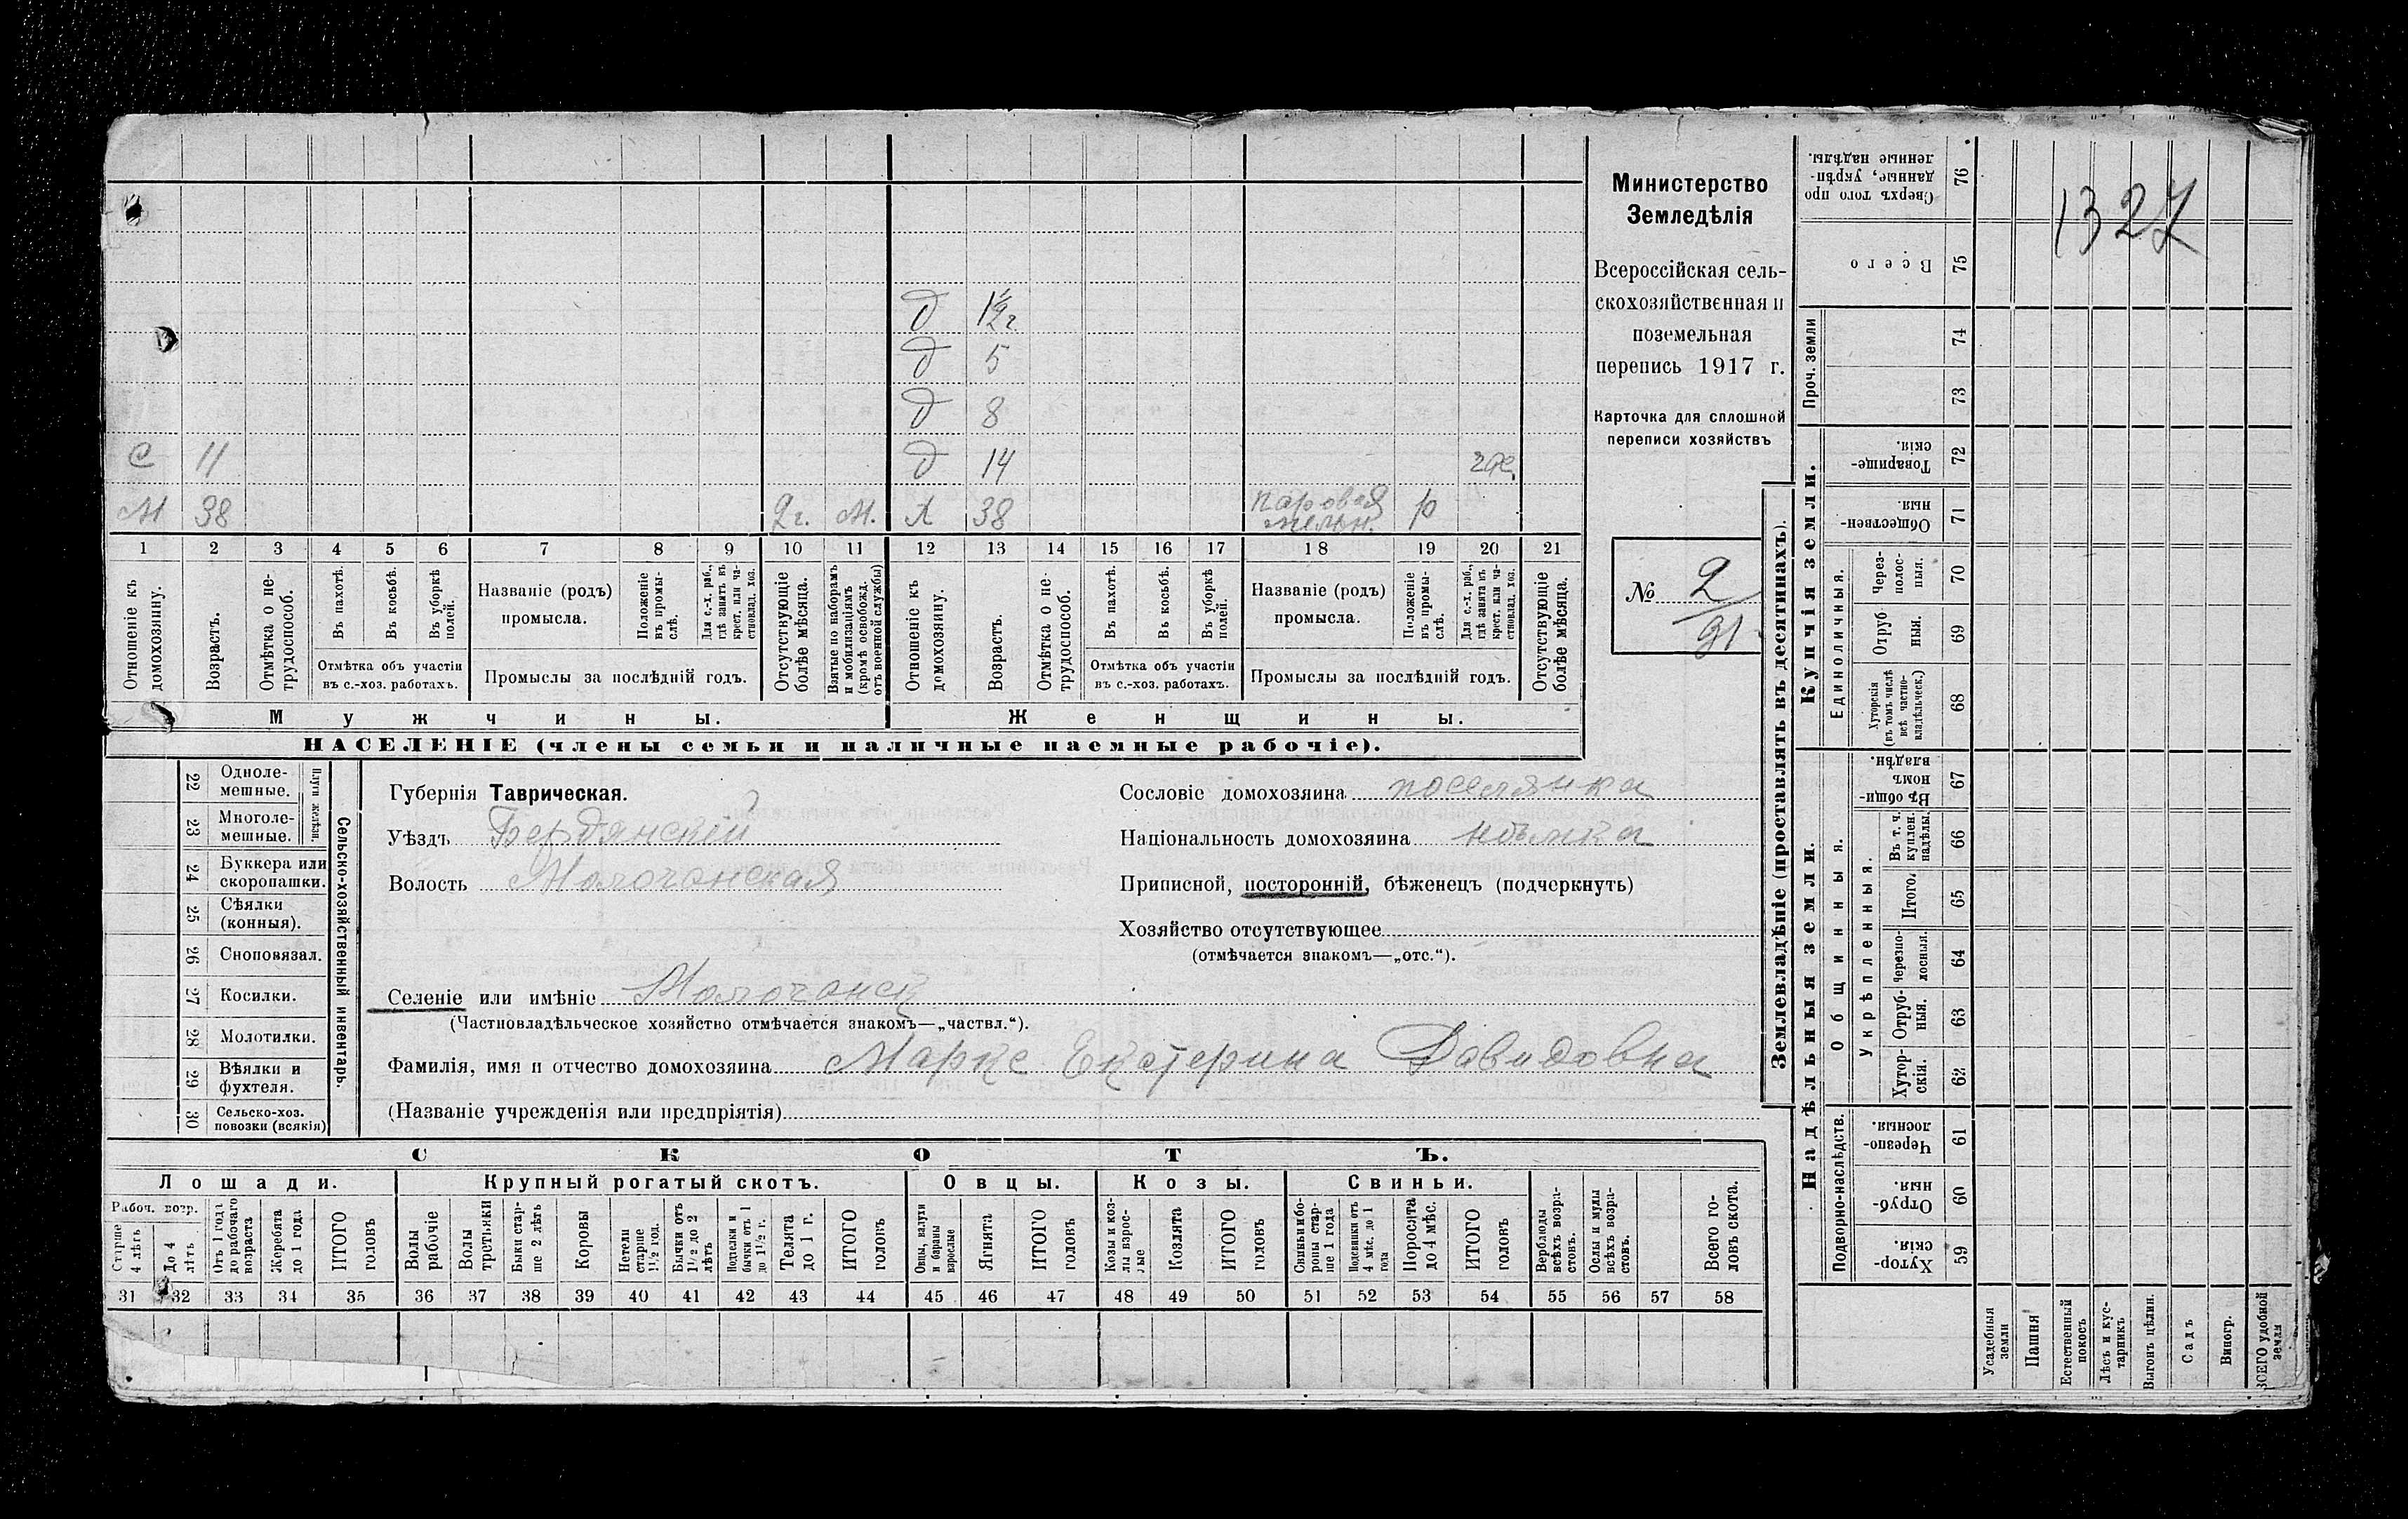 1327
Министерство
Земледѣлія
Всероссійская сель-
скохозяйственная и
поземельная
перепись 1917 г.
Карточка для сплошной
переписи хозяйствъ
№ 2
91
д 1½ г.
д 5
д 8
С 11 д 14
М 38 2 г. М. Х 38 паровая мельн. р
1 2 3 4 5 6 7 8 9 10 11 12 13 14 15 16 17 18 19 20 21
Отношеніе къ домохозяину.
Возрастъ.
Отмѣтка о не-трудоспособ.
Въ пахотѣ.
Въ косьбѣ.
Въ уборкѣ полей.
Отмѣтка объ участіи
въ с.-хоз. работахъ.
Названіе (родъ)
промысла.
Положеніе въ промы-слѣ.
Для с.-х. раб., гдѣ занятъ въ крест. или ча-стновлад. хоз.
Промыслы за послѣдній годъ.
Отсутствующіе болѣе мѣсяца.
Взятые по наборамъ и мобилизаціямъ (кромѣ освобожд. отъ военной службы)
Отношеніе къ домохозяину.
Возрастъ.
Отмѣтка о не-трудоспособ.
Въ пахотѣ.
Въ косьбѣ.
Въ уборкѣ полей.
Отмѣтка объ участіи
въ с.-хоз. работахъ.
Названіе (родъ)
промысла.
Положеніе въ промы-слѣ.
Для с.-х. раб., гдѣ занята въ крест. или ча-стновлад. хоз.
Промыслы за послѣдній годъ.
Отсутствующіе болѣе мѣсяца.
Мужчины. Женщины.
НАСЕЛЕНІЕ (члены семьи и наличные наемные рабочіе).
Сельско-хозяйственный инвентарь.
Плуги желѣзн.
22 Одноле-мешные.
23 Многоле-мешные.
24 Буккера или скоропашки.
25 Сѣялки (конныя).
26 Сноповязал.
27 Косилки.
28 Молотилки.
29 Вѣялки и фухтеля.
30 Сельско-хоз. повозки (всякія)
Губернія Таврическая.
Уѣздъ Бердянскій
Волость Молочанская
Селеніе или имѣніе Молочанск
(Частновладѣльческое хозяйство отмѣчается знакомъ—„частвл.“).
Фамилія, имя и отчество домохозяина Маркс Екатерина Давидовна
(Названіе учрежденія или предпріятія)
Сословіе домохозяина поселянка
Національность домохозяина нѣмка
Приписной, посторонній, бѣженецъ (подчеркнуть)
Хозяйство отсутствующее
(отмѣчается знакомъ—„отс.“).
СКОТЪ.
Лошади. Крупный рогатый скотъ. Овцы. Козы. Свиньи.
Рабоч. возр.
Старше 4 лѣтъ
До 4 лѣтъ
Отъ 1 года до рабочаго возраста
Жеребята до 1 года
ИТОГО головъ
Волы рабочіе
Волы третьяки
Быки стар-ше 2 лѣтъ
Коровы
Нетели старше 1½ год.
Бычки отъ 1½ до 2 лѣтъ
Подтелки и бычки отъ 1 до 1½ г.
Телята до 1 г.
ИТОГО головъ
Овцы, валухи и бараны взрослые
Ягнята
ИТОГО головъ
Козы и коз-лы взрос-лые
Козлята
ИТОГО головъ
Свиньи и бо-ровы стар-ше 1 года
Подсвинки отъ 4 мѣс. до 1 года
Поросята до 4 мѣс.
ИТОГО головъ
Верблюды всѣхъ возра-стовъ.
Ослы и мулы всѣхъ возра-стовъ.
Всего го-ловъ скота.
31 32 33 34 35 36 37 38 39 40 41 42 43 44 45 46 47 48 49 50 51 52 53 54 55 56 57 58
Землевладѣніе (проставлять въ десятинахъ).
Надѣльныя земли. Купчія земли. Проч. земли
Подворно-наслѣдств.
Общинныя.
Укрѣпленныя.
Единоличныя.
59 Хутор-скія.
60 Отруб-ныя.
61 Черезпо-лосныя.
62 Хутор-скія.
63 Отруб-ныя.
64 Черезпо-лосныя.
65 Итого.
66 Въ т. ч. куплен. надѣлы.
67 Въ общи-номъ владѣн.
68 Хуторскія (въ томъ числѣ всѣ частно-владѣльческ.)
69 Отруб ныя.
70 Через-полос-ныя.
71 Обществен-ныя.
72 Товарище-скія.
73
74
75 Всего
76 Сверхъ того про данные, укрѣп-ленные надѣлы.
Усадебныя земли
Пашня
Естественный покосъ
Лѣсъ и кус-тарникъ
Выгонъ цѣлин.
Садъ
Виногр.
ВСЕГО удобной земли